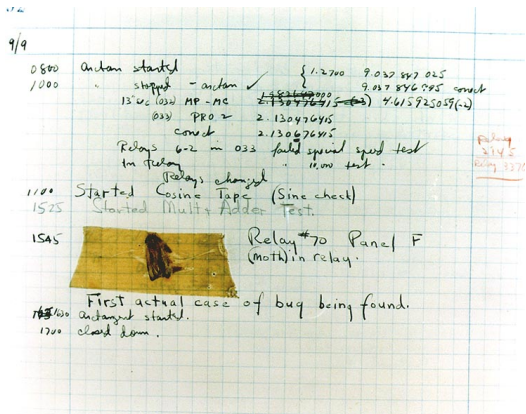 9/9
0800 Antan started
1000 " stopped - antan ✓ { 1.2700 9.037 847 025
9.037 846 995 correct
13"UC (032) MP - MC 2.130476415 (-3) 4.615925059(-2)
(033) PRO 2 2.130476415
correct 2.130676415
Relays 6-2 in 033 failed special speed test
In relay " 10,000 test .
Relays changed
Relay
2145
Relay 3370
1100 Started Cosine Tape (Sine check)
1525 Started Mult+ Adder Test.
1545 Relay #70 Panel F
(Moth) in relay.
First actual case of bug being found.
1630 antangent started.
1700 closed down.